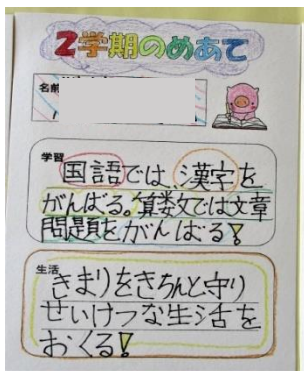 2学期のめあて
名前
学習
国語では、漢字を
がんばる。算数では文章
問題をがんばる!
生活
きまりをきちんと守り
せいけつな生活を
おくる!